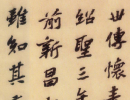 世傳懷素
紹聖三年
前新昌
雖知其